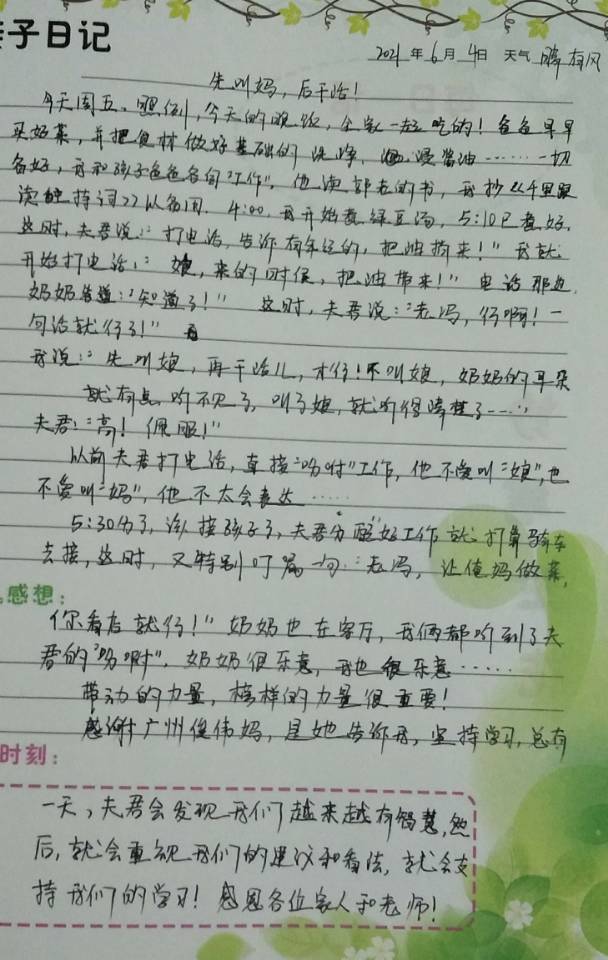 子日记
2021年6月4日 天气 晴有风
先叫妈，后干活！
今天周五、照例，今天的晚饭，全家一起吃的！爸爸早早
买好菜，并把食材做好基础的洗净、浸酱油……一切
备好，我和孩子爸爸各自"工作"，他读郭老的书，我抄《千里
读 诗词》以备用。4:00，我开始煮绿豆汤，5:10已煮好，
这时，夫君说："打电话，告诉有年纪的，把油捎来！"我就
开始打电话："娘，来的时候，把油带来！"电话那边，
奶奶答道："知道了！" 这时，夫君说："老冯，行啊！一
句话就行了！"
我说："先叫娘，再干活儿，才行！不叫娘，奶奶的耳朵
就有点听不见了，叫了娘，就听得清楚了……"
夫君："高！佩服！"
以前夫君打电话，直接"吩咐"工作，他不爱叫"娘"，也
不爱叫"妈"，他不太会表达……
5:30分了，该接孩子了，夫君分配好工作就打算骑车
去接，这时，又特别叮嘱一句："老冯，让俺妈做菜，
感想：
你看店就行！"奶奶也在客厅，我俩都听到了夫
君的"吩咐"，奶奶很乐意，我也很乐意……
带动的力量，榜样的力量很重要！
感谢广州俊伟妈，是她告诉我，坚持学习，总有
时刻：
一天，夫君会发现我们越来越有智慧，然
后，就会重视我们的建议和看法，就会支
持我们的学习！感恩各位家人和老师！